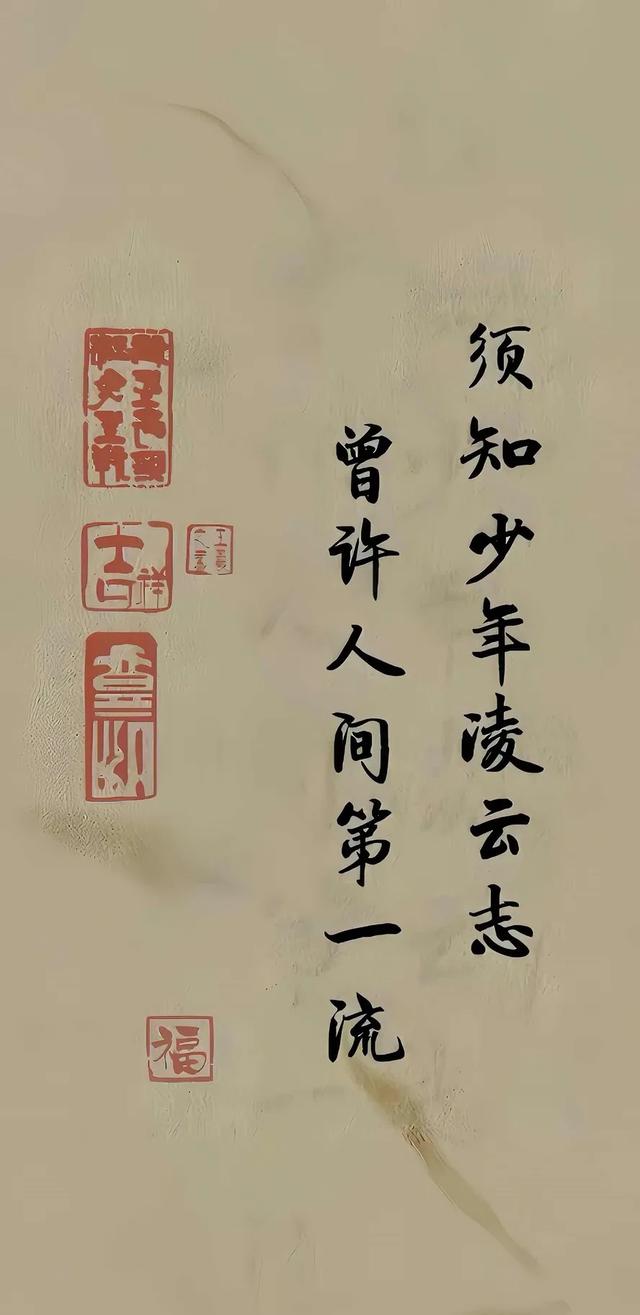 须知少年凌云志
曾许人间第一流
吉祥
福